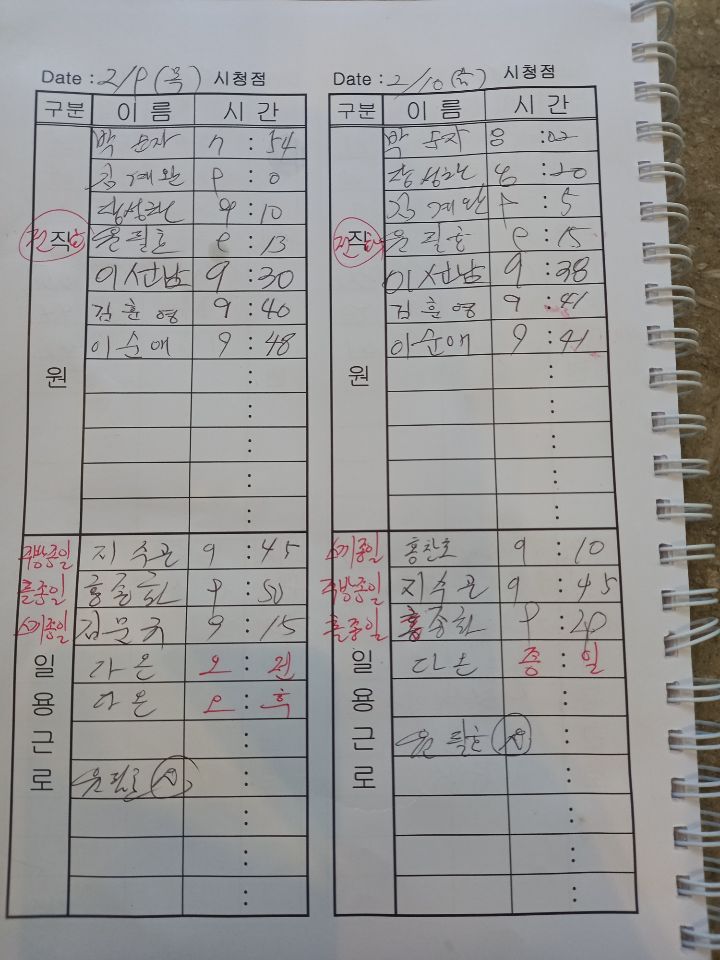 Date : 2/9 (목) 시청점
구분 이름 시간
직원
박 순자 7 : 54
김계완 9 : 0
장성란 9 : 10
윤필효 9 : 13
이선남 9 : 30
김훈영 9 : 40
이순애 9 : 48
:
:
:
:
:
주방종일 지수근 9 : 45
홀종일 9 : 50
스끼종일 김문규 9 : 15
일용근로
가온 오 : 전
다온 오 : 후
:
윤필효
:
:
:
Date : 2/10 (금) 시청점
구분 이름 시간
직원
박 순자 8 : 02
장성란 8 : 20
김계완 9 : 5
윤필효 9 : 15
이선남 9 : 38
김훈영 9 : 41
이순애 9 : 41
:
:
:
:
:
스끼종일 홍찬호 9 : 10
주방종일 지수근 9 : 45
홀종일 홍종화
일용근로
다온 종 : 일
:
윤필효 :
:
:
:
: